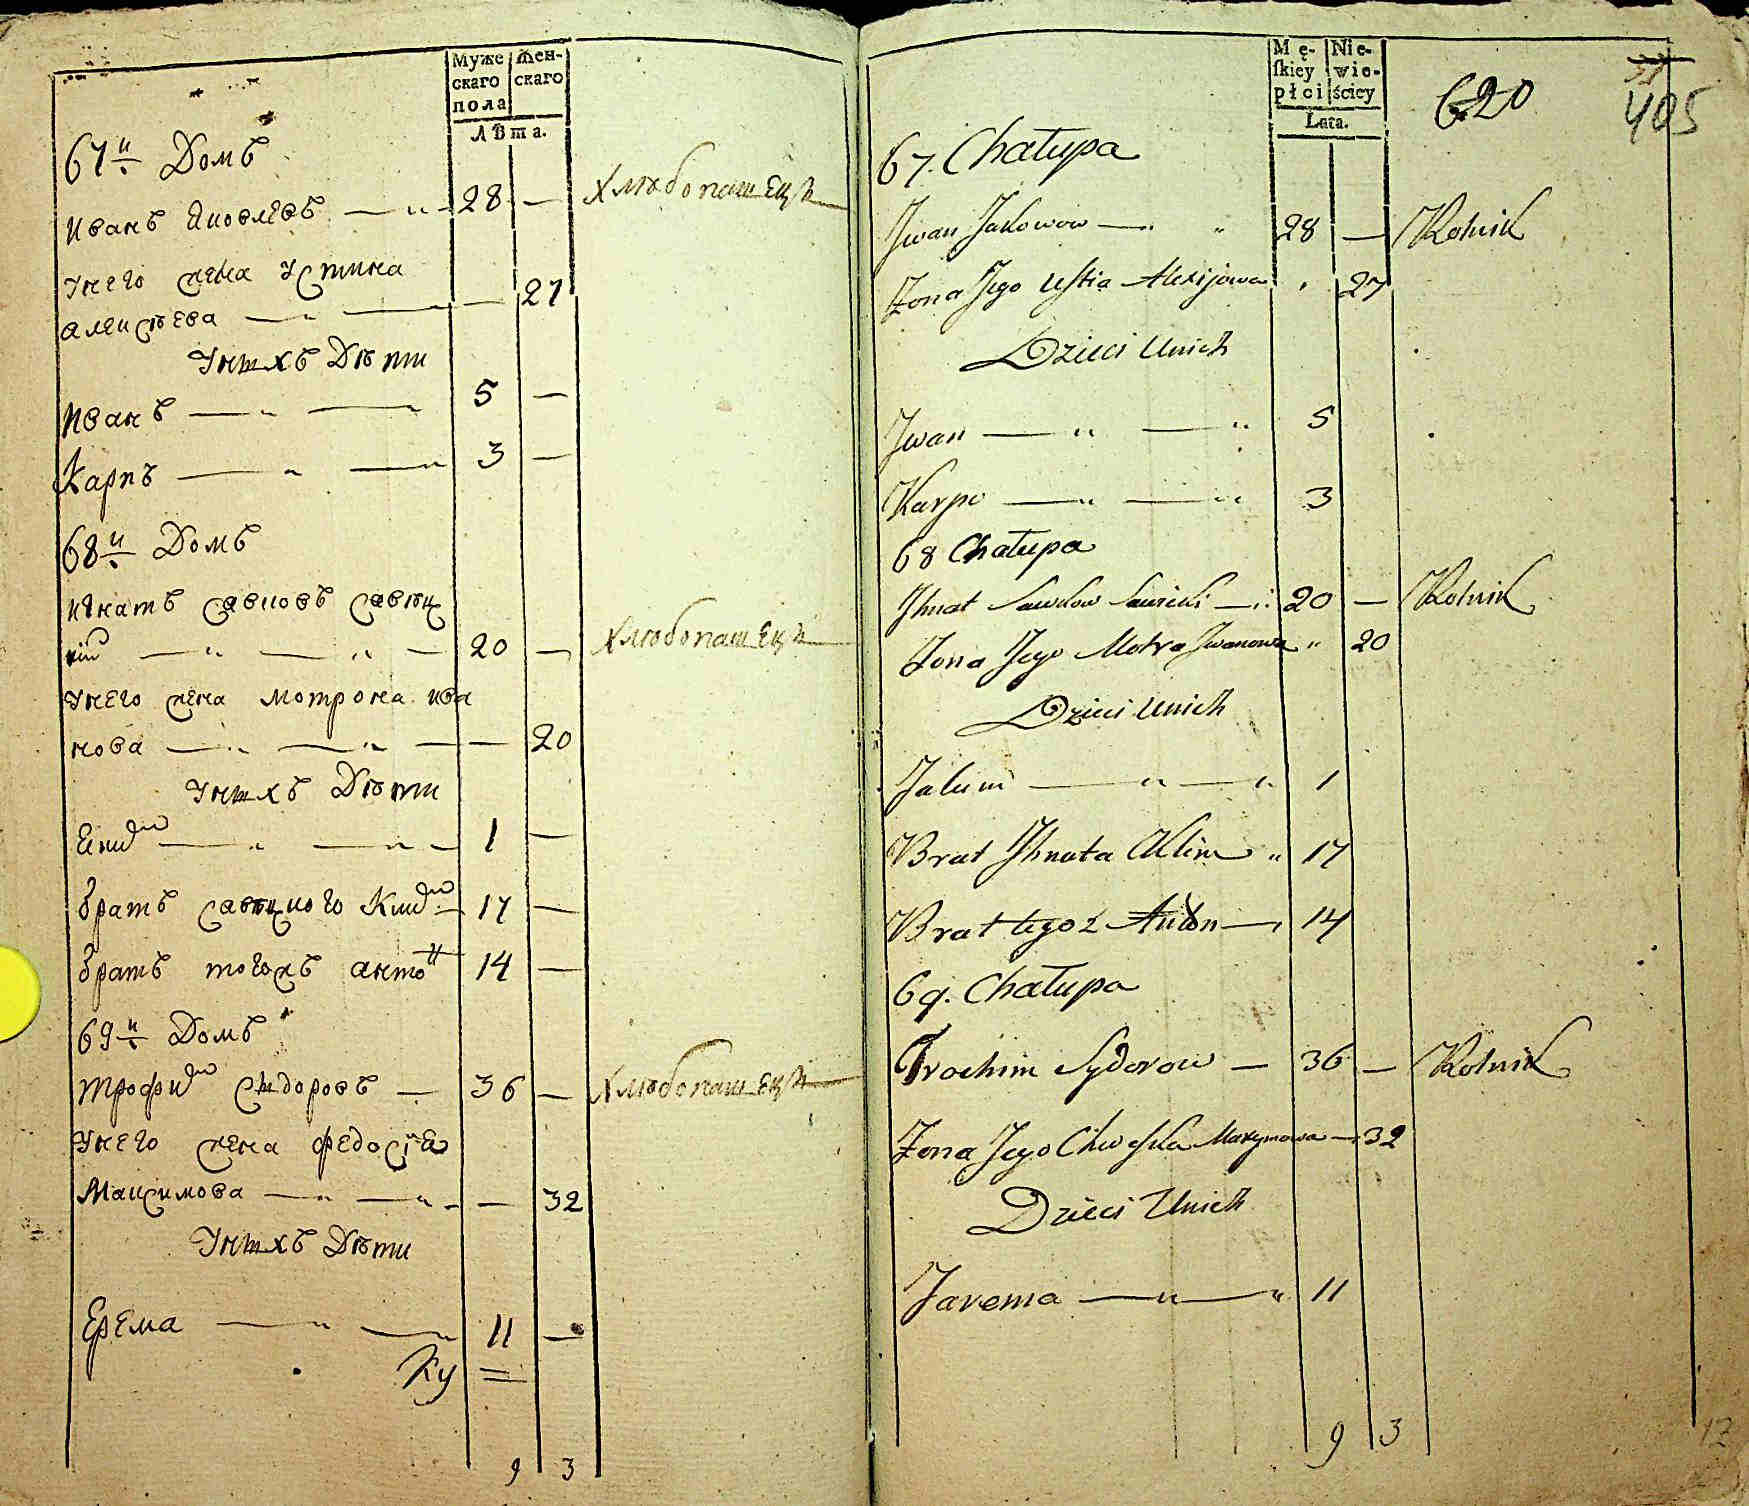 Муже
скаго
пола
Жен-
скаго
Лѣта.
67й Домъ
Иванъ Яковлевъ — 28 — хлюбопашецъ
Унего жена Устина
Алексѣева — — 27
Унихъ Дѣти
Иванъ — — 5 —
Карпъ — — 3 —
68й Домъ
Игнатъ Савковъ Савиц
кий — — 20 — хлюбопашецъ
Унего жена Мотрона Ива
нова — — 20
Унихъ Дѣти
— — 1 —
братъ Савицкого Клим — 17 —
братъ тогожъ антонъ 14 —
69й Домъ
Трофим Сидоровъ — 36 — хлюбопашецъ
Унего жена Федосія
Максимова — — 32
Унихъ Дѣти
Ерема — — 11 —
Ку =
9 3
Mę-
skiey
płci
Nie-
wie-
ściey
Lata.
620
405
67. Chałupa
Jwan Jakowow — 28 — Rolnik
Żona Jego Ustia Alexijowa 27
Dzieci Unich
Jwan — — 5
Karpo — — 3
68 Chałupa
Jhnat Sawkow Sawicki — 20 — Rolnik
Żona Jego Motra Jwanowa 20
Dzieci Unich
Jakim — — 1
Brat Jhnata Klim 17
Brat tegoż Anton — 14
69. Chałupa
Trochim Sydorow — 36 — Rolnik
Żona Jego Chweśka Maxymowa — 32
Dzieci Unich
Jarema — — 11
9 3
12